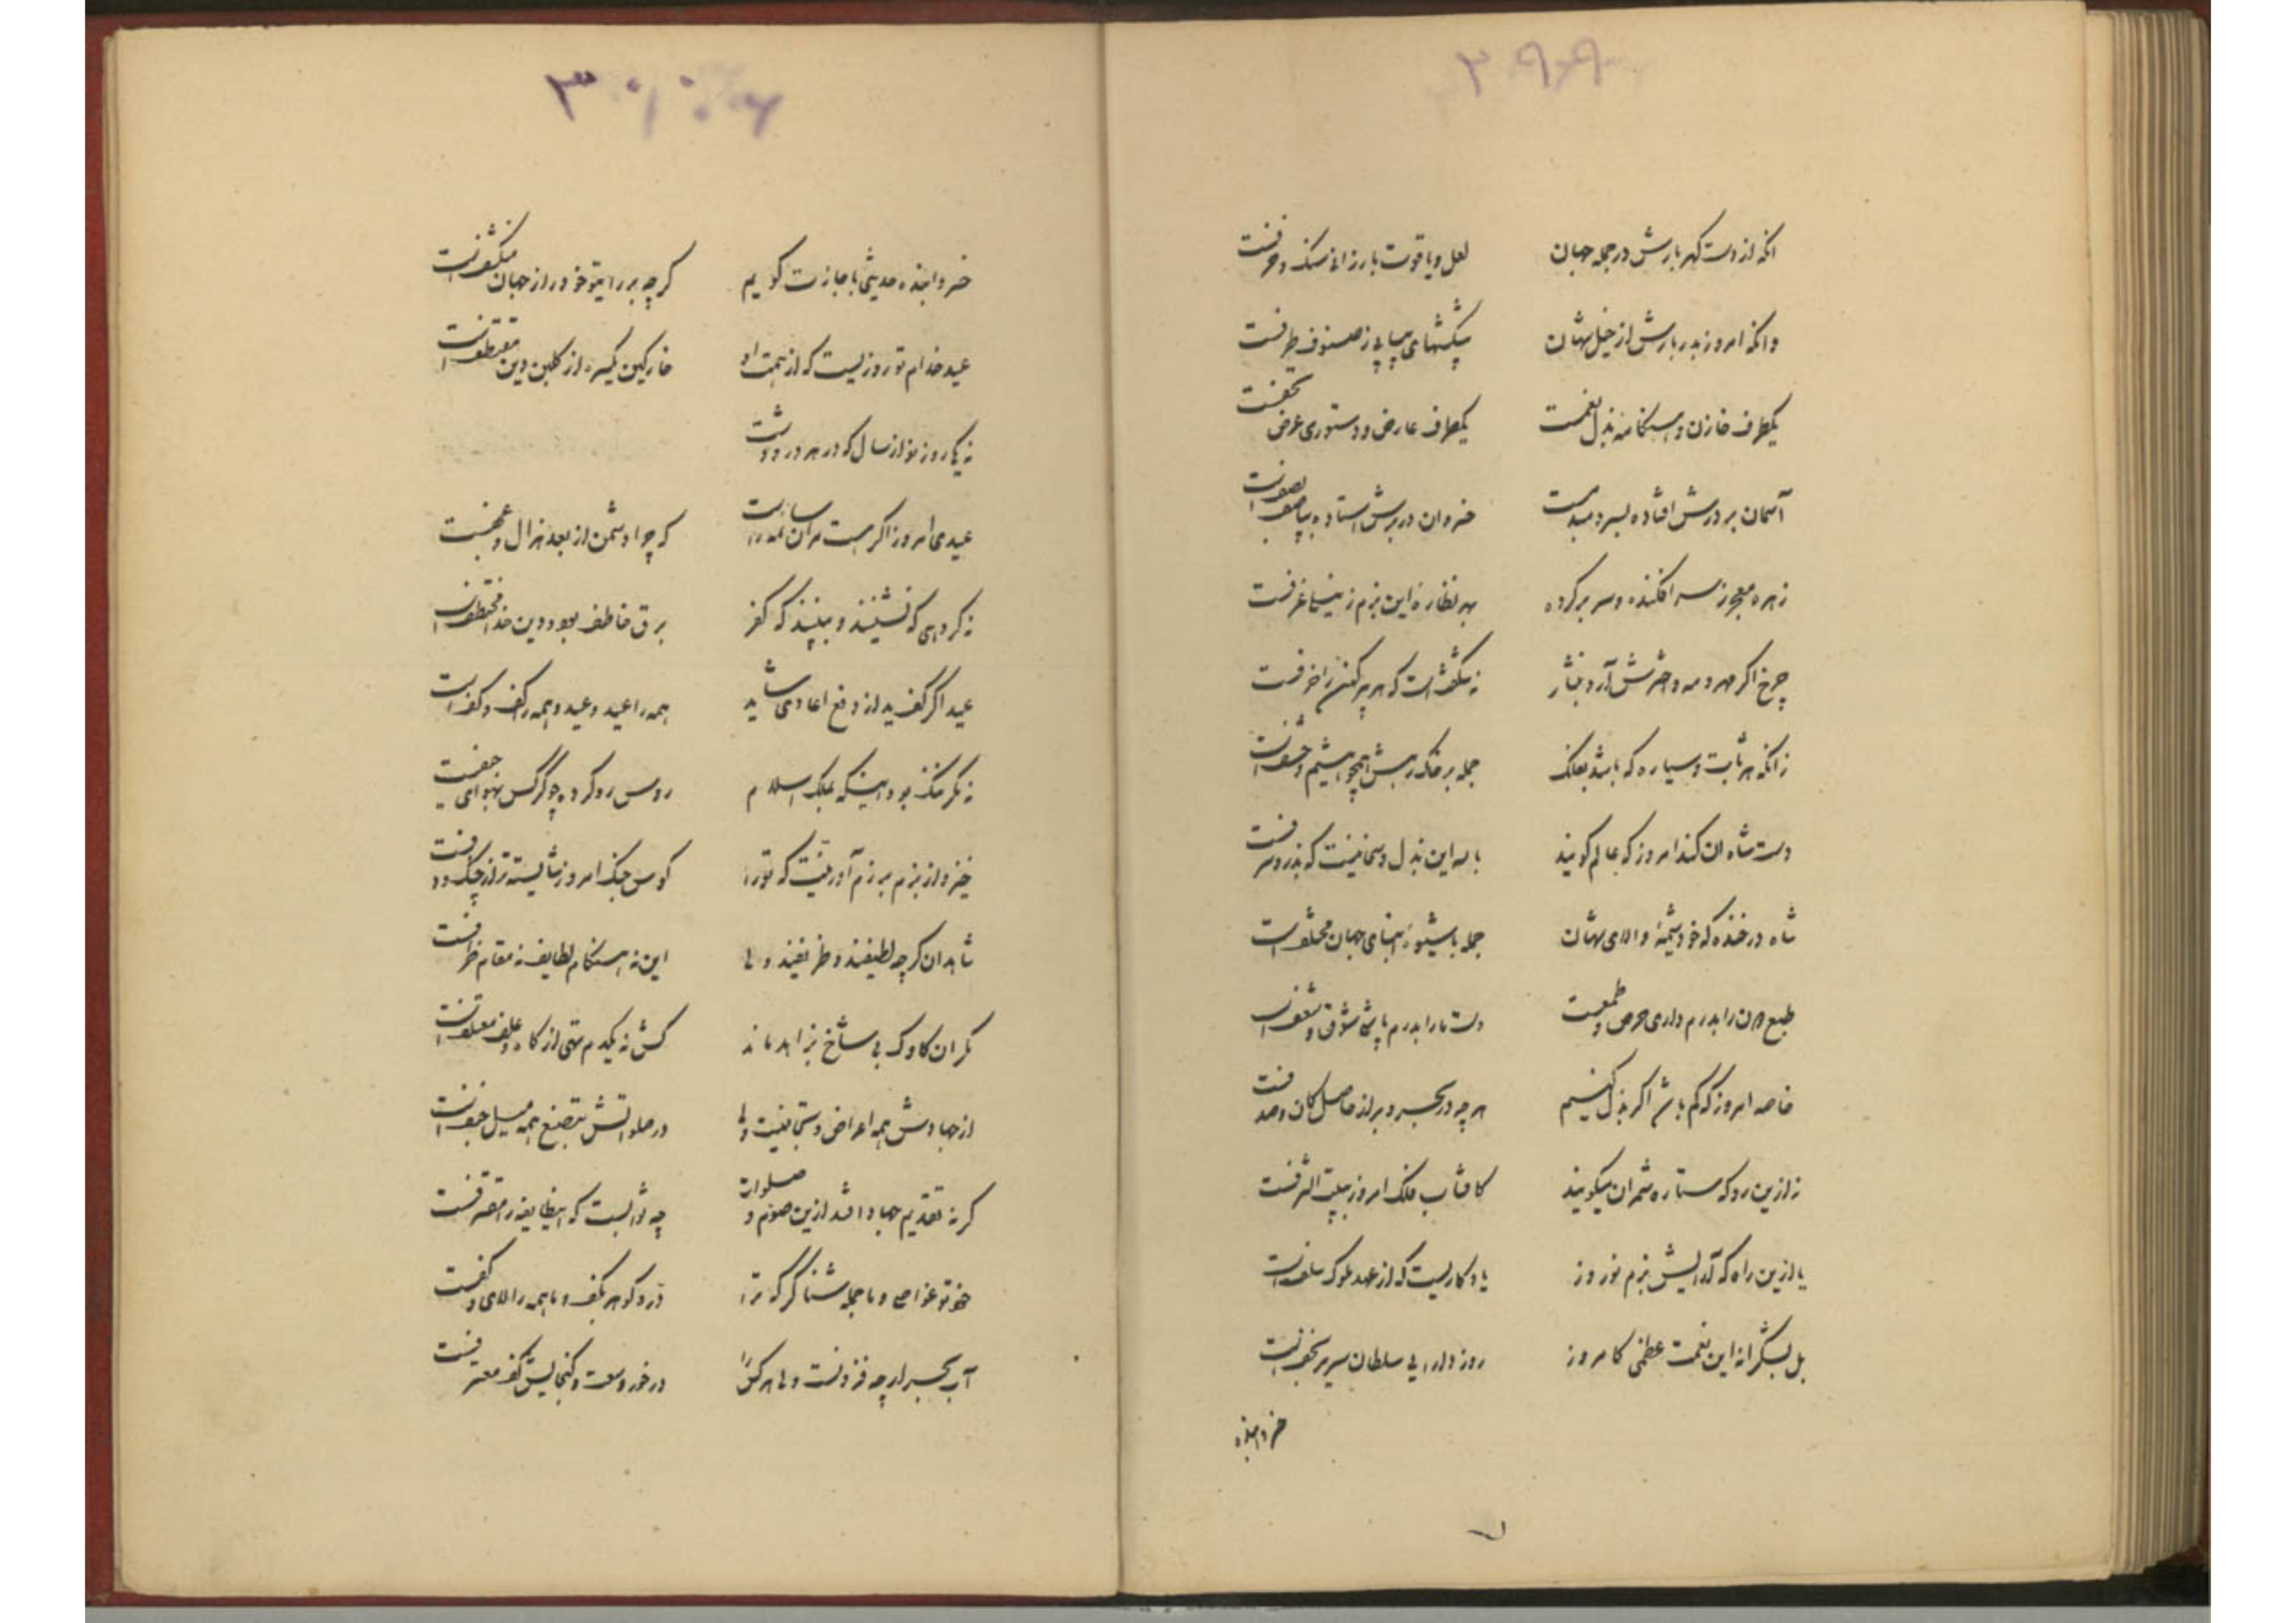 ۳۹۹
آنکه از دست گهربارش در جمله جهان
لعل و یاقوت بارزانی سنگ و خزفست
وانکه امروز بدربارش از خیل شهان
پیشکشهای پیاپی ز صنوف طرفست
یکطرف خازن و هنگامه بذل نعمست
یکطرف عارض و دستوری عرض تحفست
آسمان بر درش افتاده بسر
خسروان در برش استاده بپا صف بصفست
زهره معجر ز سر افکنده و سر بر کرده
بهر نظاره این بزم ز نیلی غرفست
چرخ اگر مهر و مه و اخترش آرد بنثار
نه شگفتست که هر پیر کهن را خرفست
زانکه هر ثابت و سیاره که باشد بفلک
جمله بر خاک رهش همچو هشیم و حشفست
دست شاه ان کند امروز که عالم گویند
با این بذل و سخا نیست که بذر و سرفست
شاه در خنده که خود شیمه والای شهان
جمله با شیوه ابنای جهان مختلفست
طبع دونرا بدرم داری حرص و طمعست
دست ما را بدرم پاشی شوق و شعفست
خاصه امروز که کم باشد اگر بذل کنیم
هر چه در بحر و بر از حاصل کان و صدفست
نه ازین رو که ستاره شمران میگویند
کافتاب فلک امروز ببیت الشرفست
یا ازین راه که آرایش بزم نوروز
یادگاریست که از عهد ملوک سلفست
بل بشکرانه این نعمت عظمی کامروز
روز دارایی سلطان سریر نجفست
خسروا بنده
۳۰۰
خسروا بنده حدیثی باجازت گویم
گرچه بر رای تو خود راز جهان منکشفست
عید خدام تو روزیست که از همت او
خار کین یکسره از گلبن دین مقتطفست
نه یکی روز نو از سال که در هر در و دشت
عیدی امروز اگر هست
که چو او دشمن از بعد هزال و عجفست
نه گروهی که نشینند و ببینند که کفر
برق خاطف بود و دین خدا مختطفست
عید اگر گفتند از دفع اعادی شاید
همه را عید وعید و همه را کف و کفست
نه مگر ننگ بود اینکه بملک اسلام
روس رو کرده چو کرکس بهوای جیفست
خیز و از بزم برزم آور نیت که تو را
کوس جنگ امروز شایسته تر از چنگ و دفست
شاهدان گرچه لطیفند و ظریفند ولی
این نه هنگام لطایف نه مقام ظرفست
مگر ان گاوک بی شاخ بزاهد ماند
کش نه یکدم تهی از کاه و علف معتلفست
از جهادش همه اعراض و تجافیست ولی
در صلواتش بتصنع همه میل جنفست
گر نه تقدیم جهاد افتد ازین صوم و صلوات
چه ثوابست که اینطایفه را مقترفست
خود تو غواصی و ما جمله شناگر که ترا
در و گوهر بکف و ما همه را لای و کفست
آب بحر ار چه فزونست ولی هر کس را
در خور وسعت و گنجایش کف مغترفست